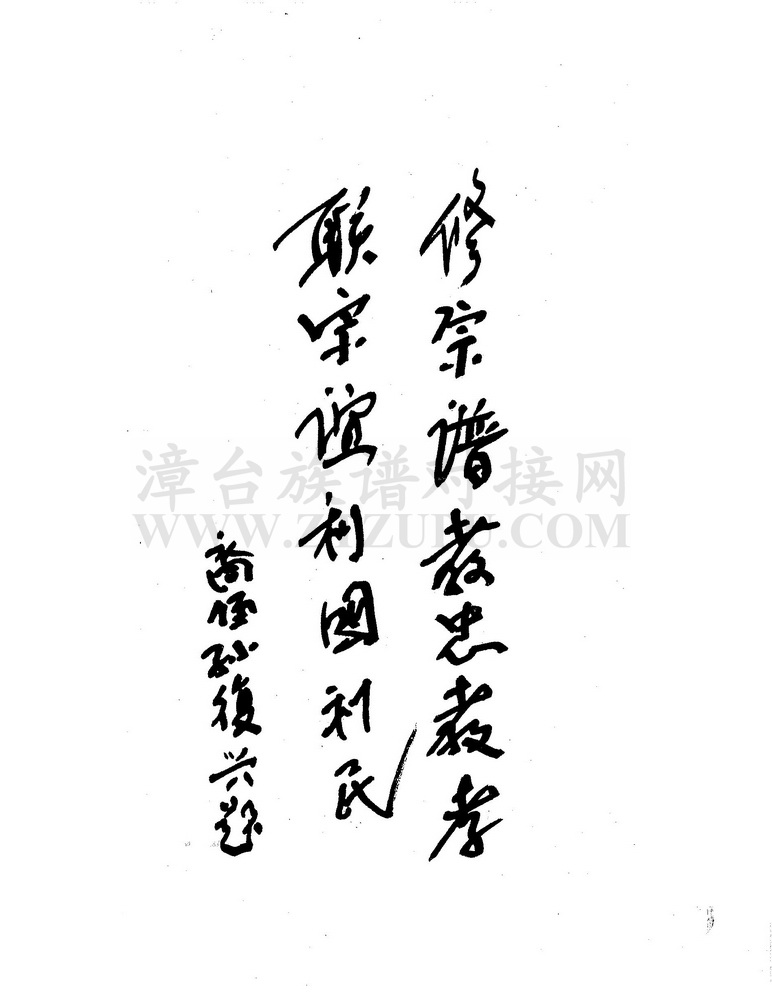 修宗谱教忠教孝
联宗谊利国利民
裔侄孙復兴题
漳台族谱对接网
WWW.ZTZUPU.COM